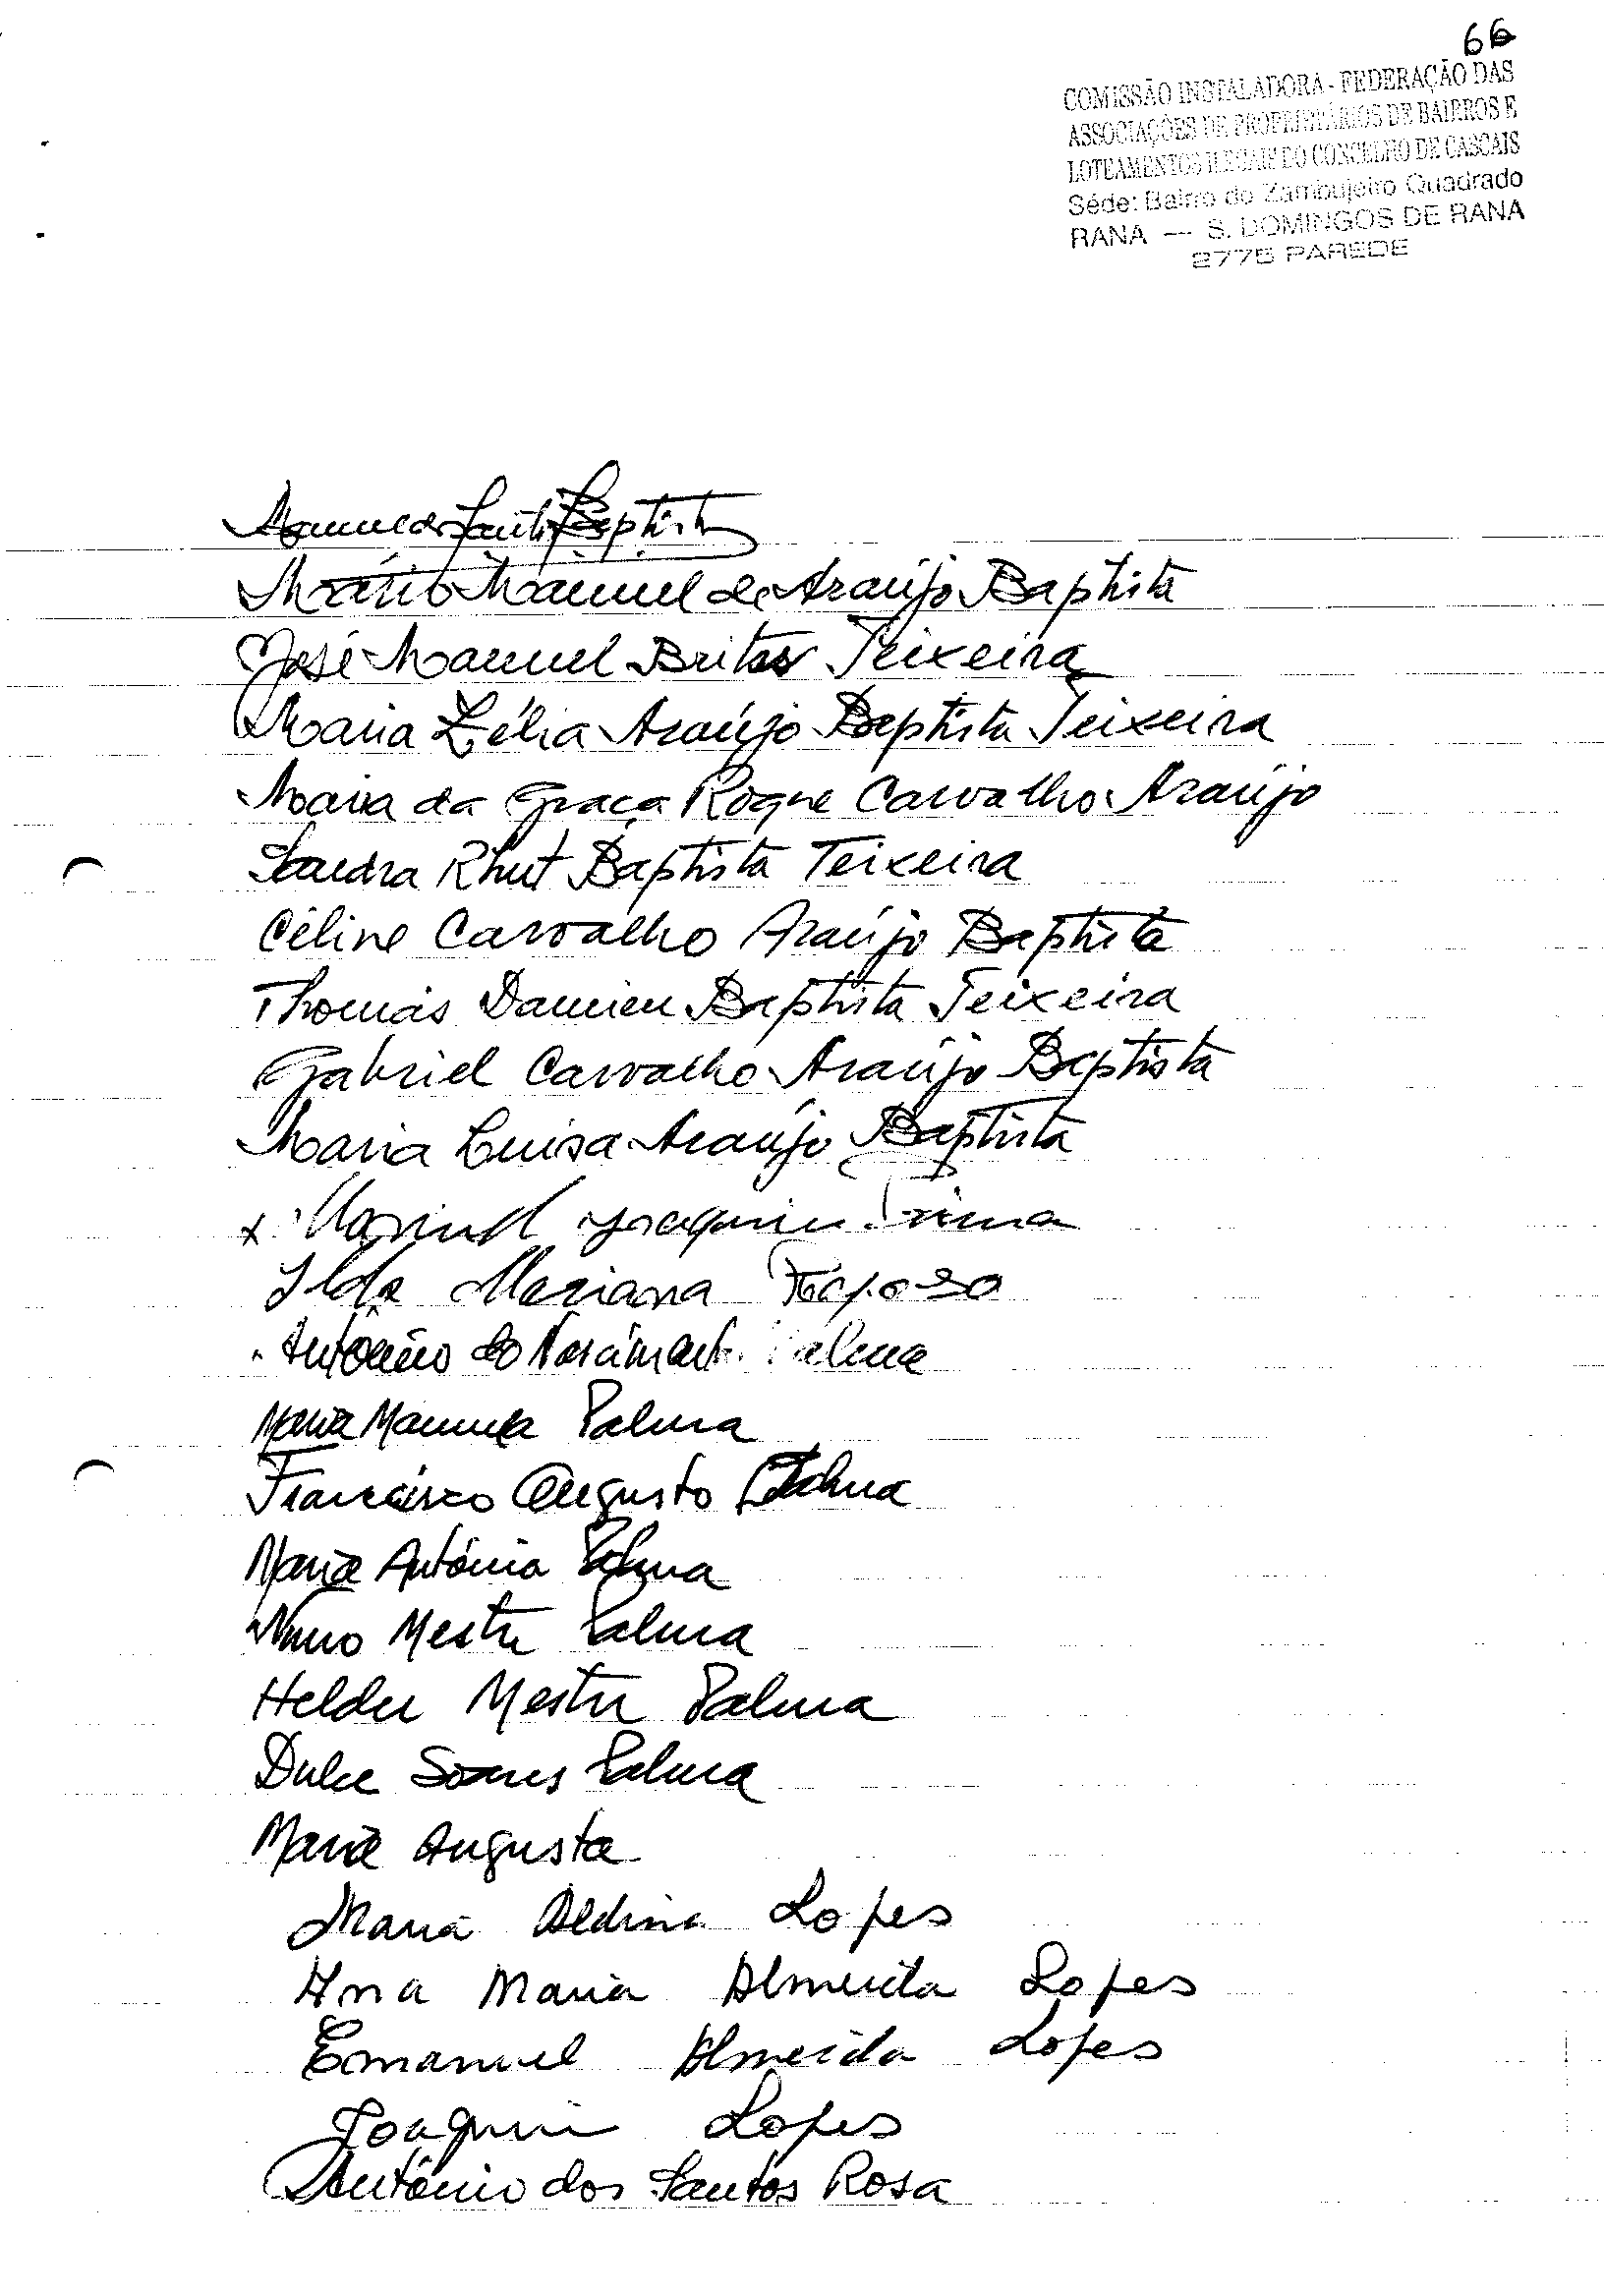 66
COMISSÃO INSTALADORA - FEDERAÇÃO DAS
ASSOCIAÇÕES DE PROPRIETÁRIOS DE BAIRROS E
LOTEAMENTOS ILEGAIS DO CONCELHO DE CASCAIS
Séde: Bairro do Zambujeiro Quadrado
RANA — S. DOMINGOS DE RANA
2775 PAREDE
Baptista
Mário Manuel de Araújo Baptista
José Manuel Brites Teixeira
Maria Zélia Araújo Baptista Teixeira
Maria da Graça Roque Carvalho Araújo
Sandra Rhut Baptista Teixeira
Céline Carvalho Araújo Baptista
Thomás Damien Baptista Teixeira
Gabriel Carvalho Araújo Baptista
Maria Luisa Araújo Baptista
x Manuel Joaquim
Ilda Mariana Raposo
António do Nascimento Palma
Maria Manuela Palma
Francisco Augusto Palma
Maria Antónia Palma
Nuno Mestre Palma
Helder Mestre Palma
Dulce Soares Palma
Maria Augusta
Maria Aldina Lopes
Ana Maria Almeida Lopes
Emanuel Almeida Lopes
Joaquim Lopes
António dos Santos Rosa